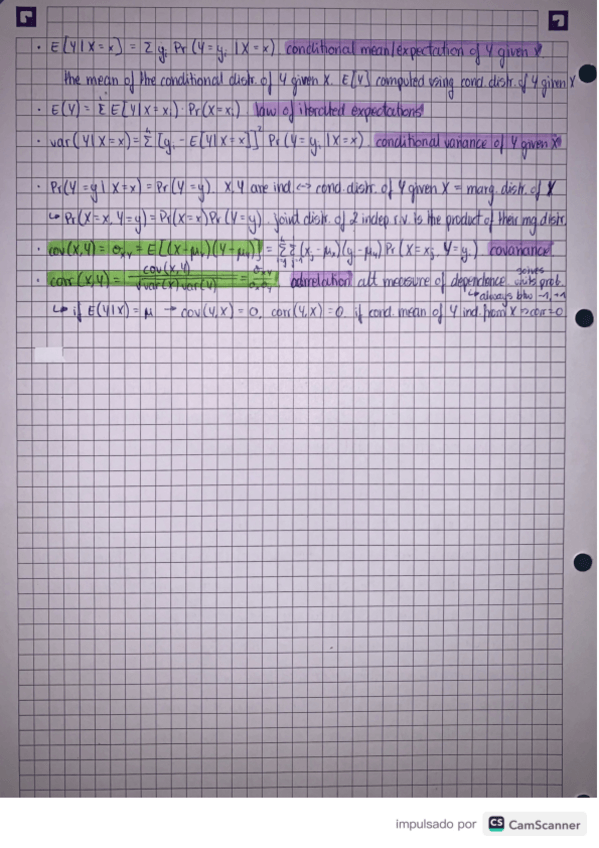 · E[Y|X=x] = Σ yᵢ Pr(Y=yᵢ|X=x) conditional mean/expectation of Y given X.
the mean of the conditional distr. of Y given X. E[Y] computed using cond. distr. of Y given X
· E(Y) = Σ E[Y|X=xᵢ)·Pr(X=xᵢ) law of iterated expectations
· var(Y|X=x) = Σ [yᵢ - E[Y|X=x]]² Pr(Y=yᵢ|X=x) conditional variance of Y given X
· Pr(Y=y|X=x) = Pr(Y=y). X,Y are ind. ↔ cond. distr. of Y given X = marg. distr. of Y
↳ Pr(X=x, Y=y) = Pr(X=x)Pr(Y=y). joind distr. of 2 indep r.v. is the product of their mg distr.
· cov(X,Y) = σxy = E[(X-μx)(Y-μy)] = ΣΣ(xⱼ-μx)(yᵢ-μy) Pr(X=xⱼ, Y=yᵢ) covariance
· corr(X,Y) = cov(X,Y) / √var(X)var(Y) = σxy / σxσy correlation alt measure of dependence solves units prob.
↳ always btw -1, +1
↳ if E(Y|X) = μ → cov(Y,X) = 0, corr(Y,X) = 0 if cond. mean of Y ind. from X → corr=0
impulsado por CS CamScanner